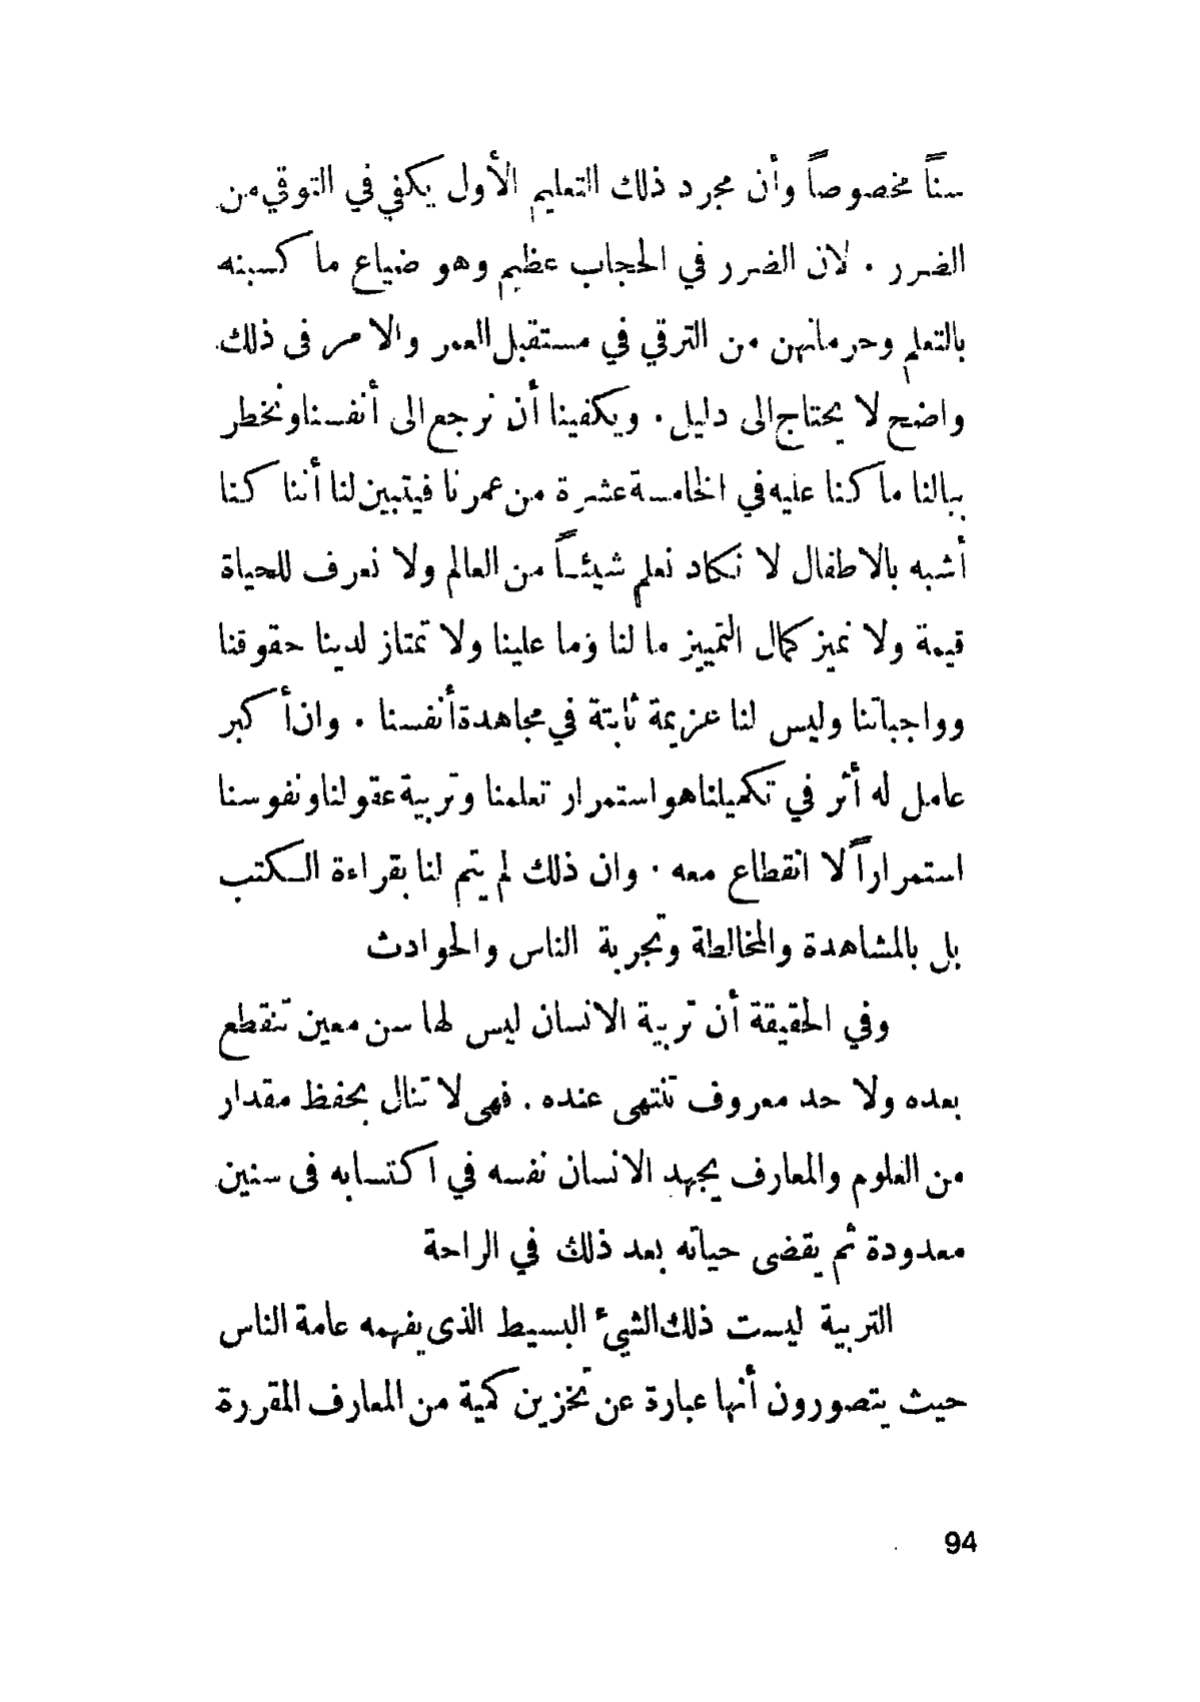 سناً مخصوصاً وأن مجرد ذلك التعليم الأول يكفي في التوقي من
الضرر . لان الضرر في الحجاب عظيم وهو ضياع ما كسبنه
بالتعلم وحرمانهن من الترقي في مستقبل العمر والامر فى ذلك
واضح لا يحتاج الى دليل . ويكفينا أن نرجع الى أنفسنا ونخطر
ببالنا ما كنا عليه في الخامسة عشرة من عمرنا فيتبين لنا أننا كنا
أشبه بالاطفال لا نكاد نعلم شيئاً من العالم ولا نعرف للحياة
قيمة ولا نميز كمال التمييز ما لنا وما علينا ولا تمتاز لدينا حقوقنا
وواجباتنا وليس لنا عزيمة ثابتة في مجاهدة أنفسنا . وان أكبر
عامل له أثر في تكميلنا هو استمرار تعلمنا وتربية عقولنا ونفوسنا
استمراراً لا انقطاع معه . وان ذلك لم يتم لنا بقراءة الكتب
بل بالمشاهدة والمخالطة وتجربة الناس والحوادث
وفي الحقيقة أن تربية الانسان ليس لها سن معين تنقطع
بعده ولا حد معروف تنتهى عنده . فهى لا تنال بحفظ مقدار
من العلوم والمعارف يجهد الانسان نفسه في اكتسابه فى سنين
معدودة ثم يقضى حياته بعد ذلك في الراحة
التربية ليست ذلك الشيئ البسيط الذى يفهمه عامة الناس
حيث يتصورون أنها عبارة عن تخزين كمية من المعارف المقررة
94